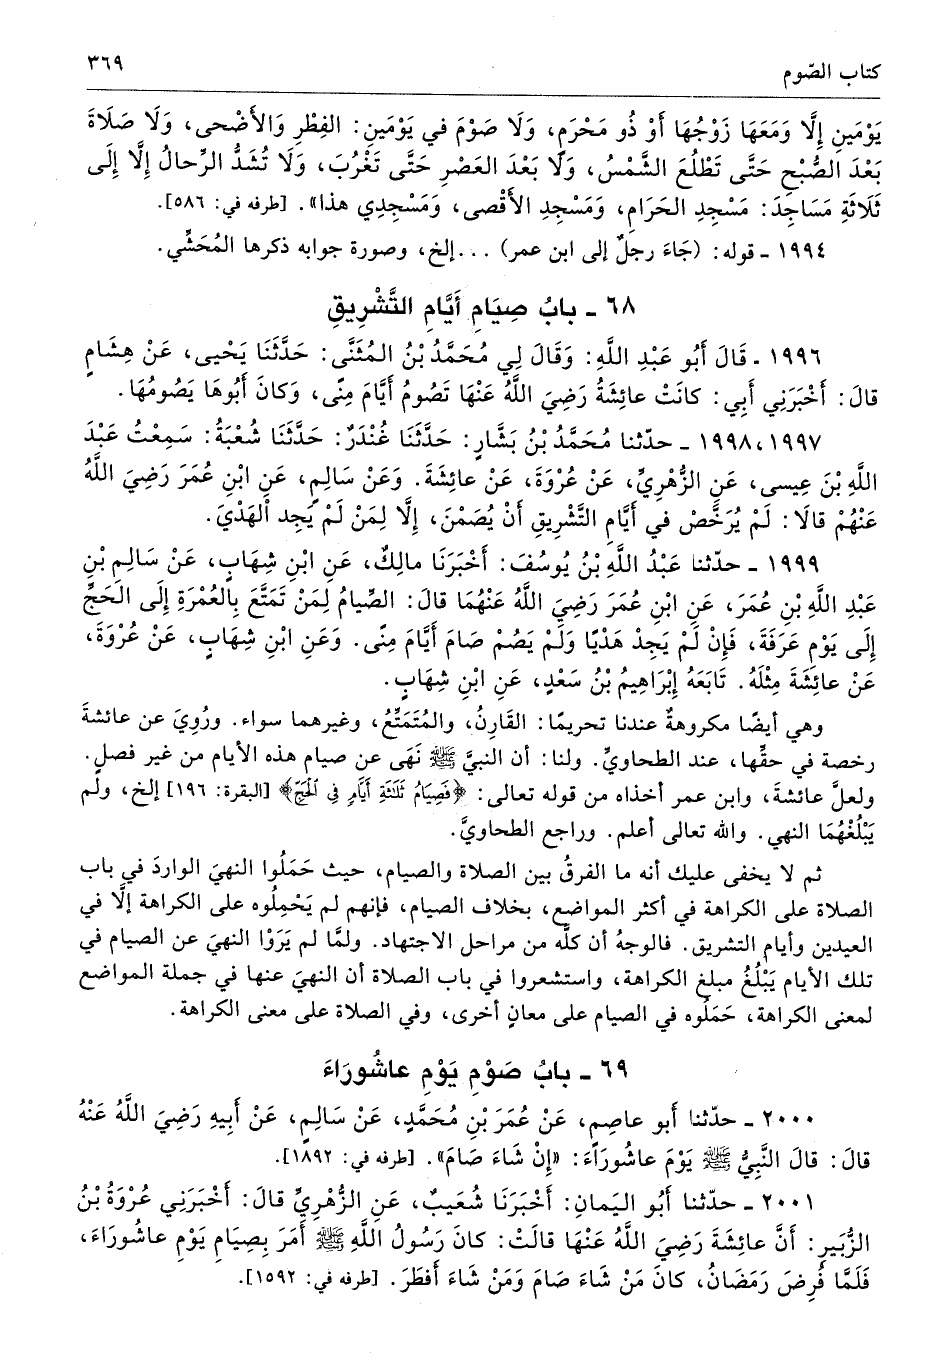 كتاب الصّوم
٣٦٩
يَوْمَينِ إِلَّا وَمَعَهَا زَوْجُهَا أَوْ ذُو مَحْرَمٍ، وَلَا صَوْمَ في يَوْمَينِ: الفِطْرِ وَالأَضْحى، وَلَا صَلَاةَ
بَعْدَ الصُّبْحِ حَتَّى تَطْلُعَ الشَّمْسُ، وَلَا بَعْدَ العَصْرِ حَتَّى تَغْرُبَ، وَلَا تُشَدُّ الرِّحالُ إِلَّا إِلَى
ثَلَاثَةِ مَسَاجِدَ: مَسْجِدِ الحَرَامِ، وَمَسْجِدِ الأَقْصى، وَمَسْجِدِي هذا». [طرفه في: ٥٨٦].
١٩٩٤ ـ قوله: (جَاءَ رجلٌ إلى ابن عمر) ...إلخ، وصورة جوابه ذكرها المُحَشِّي.
٦٨ ـ بابُ صِيَامِ أَيَّامِ التَّشْرِيقِ
١٩٩٦ ـ قَالَ أَبُو عَبْدِ اللَّهِ: وَقَالَ لِي مُحَمَّدُ بْنُ المُثَنَّى: حَدَّثَنَا يَحْيى، عَنْ هِشَامٍ
قالَ: أَخْبَرَنِي أَبِي: كانَتْ عائِشَةُ رَضِيَ اللَّهُ عَنْهَا تَصُومُ أَيَّامَ مِنًى، وَكانَ أَبُوهَا يَصُومُهَا.
١٩٩٧، ١٩٩٨ ـ حدّثنا مُحَمَّدُ بْنُ بَشَّارٍ: حَدَّثَنَا غُنْدَرٌ: حَدَّثَنَا شُعْبَةُ: سَمِعْتُ عَبْدَ
اللَّهِ بْنَ عِيسى، عَنِ الزُّهْرِيِّ، عَنْ عُرْوَةَ، عَنْ عائِشَةَ. وَعَنْ سَالِمٍ، عَنِ ابْنِ عُمَرَ رَضِيَ اللَّهُ
عَنْهُمْ قالَا: لَمْ يُرَخَّصْ في أَيَّامِ التَّشْرِيقِ أَنْ يُصَمْنَ، إِلَّا لِمَنْ لَمْ يَجِدِ الْهَدْيَ.
١٩٩٩ ـ حدّثنا عَبْدُ اللَّهِ بْنُ يُوسُفَ: أَخْبَرَنَا مالِكٌ، عَنِ ابْنِ شِهَابٍ، عَنْ سَالِمِ بْنِ
عَبْدِ اللَّهِ بْنِ عُمَرَ، عَنِ ابْنِ عُمَرَ رَضِيَ اللَّهُ عَنْهُمَا قالَ: الصِّيَامُ لِمَنْ تَمَتَّعَ بِالعُمْرَةِ إِلَى الحَجِّ
إِلَى يَوْمِ عَرَفَةَ، فَإِنْ لَمْ يَجِدْ هَدْيًا وَلَمْ يَصُمْ صَامَ أَيَّامَ مِنًى. وَعَنِ ابْنِ شِهَابٍ، عَنْ عُرْوَةَ،
عَنْ عائِشَةَ مِثْلَهُ. تَابَعَهُ إِبْرَاهِيمُ بْنُ سَعْدٍ، عَنِ ابْنِ شِهَابٍ.
وهي أيضًا مكروهةٌ عندنا تحريمًا: القَارِنُ، والمُتَمَتِّعُ، وغيرهما سواء. ورُوِيَ عن عائشةَ
رخصة في حقِّها، عند الطحاويِّ. ولنا: أن النبيَّ ﷺ نَهَى عن صيام هذه الأيام من غير فصلٍ.
ولعلَّ عائشةَ، وابن عمر أخذاه من قوله تعالى: ﴿فَصِيَامُ ثَلَاثَةِ أَيَّامٍ فِي الْحَجِّ﴾ [البقرة: ١٩٦] إلخ، ولم
يَبْلُغْهُمَا النهي. والله تعالى أعلم. وراجع الطحاويَّ.
ثم لا يخفى عليك أنه ما الفرقُ بين الصلاة والصيام، حيث حَمَلُوا النهيَ الواردَ في باب
الصلاة على الكراهة في أكثر المواضع، بخلاف الصيام، فإنهم لم يَحْمِلُوه على الكراهة إلَّا في
العيدين وأيام التشريق. فالوجهُ أن كلَّه من مراحل الاجتهاد. ولمَّا لم يَرَوْا النهيَ عن الصيام في
تلك الأيام يَبْلُغُ مبلغ الكراهة، واستشعروا في باب الصلاة أن النهيَ عنها في جملة المواضع
لمعنى الكراهة، حَمَلُوه في الصيام على معانٍ أخرى، وفي الصلاة على معنى الكراهة.
٦٩ ـ بابُ صَوْمِ يَوْمِ عاشُورَاءَ
٢٠٠٠ ـ حدّثنا أَبو عاصِمٍ، عَنْ عُمَرَ بْنِ مُحَمَّدٍ، عَنْ سَالِمٍ، عَنْ أَبِيهِ رَضِيَ اللَّهُ عَنْهُ
قالَ: قالَ النَّبِيُّ ﷺ يَوْمَ عاشُورَاءَ: «إِنْ شَاءَ صَامَ». [طرفه في: ١٨٩٢].
٢٠٠١ ـ حدّثنا أَبُو اليَمانِ: أَخْبَرَنَا شُعَيبٌ، عَنِ الزُّهْرِيِّ قالَ: أَخْبَرَنِي عُرْوَةُ بْنُ
الزُّبَيرِ: أَنَّ عائِشَةَ رَضِيَ اللَّهُ عَنْهَا قالَتْ: كانَ رَسُولُ اللَّهِ ﷺ أَمَرَ بِصِيَامِ يَوْمِ عاشُورَاءَ،
فَلَمَّا فُرِضَ رَمَضَانُ، كانَ مَنْ شَاءَ صَامَ وَمَنْ شَاءَ أَفطَرَ. [طرفه في: ١٥٩٢].